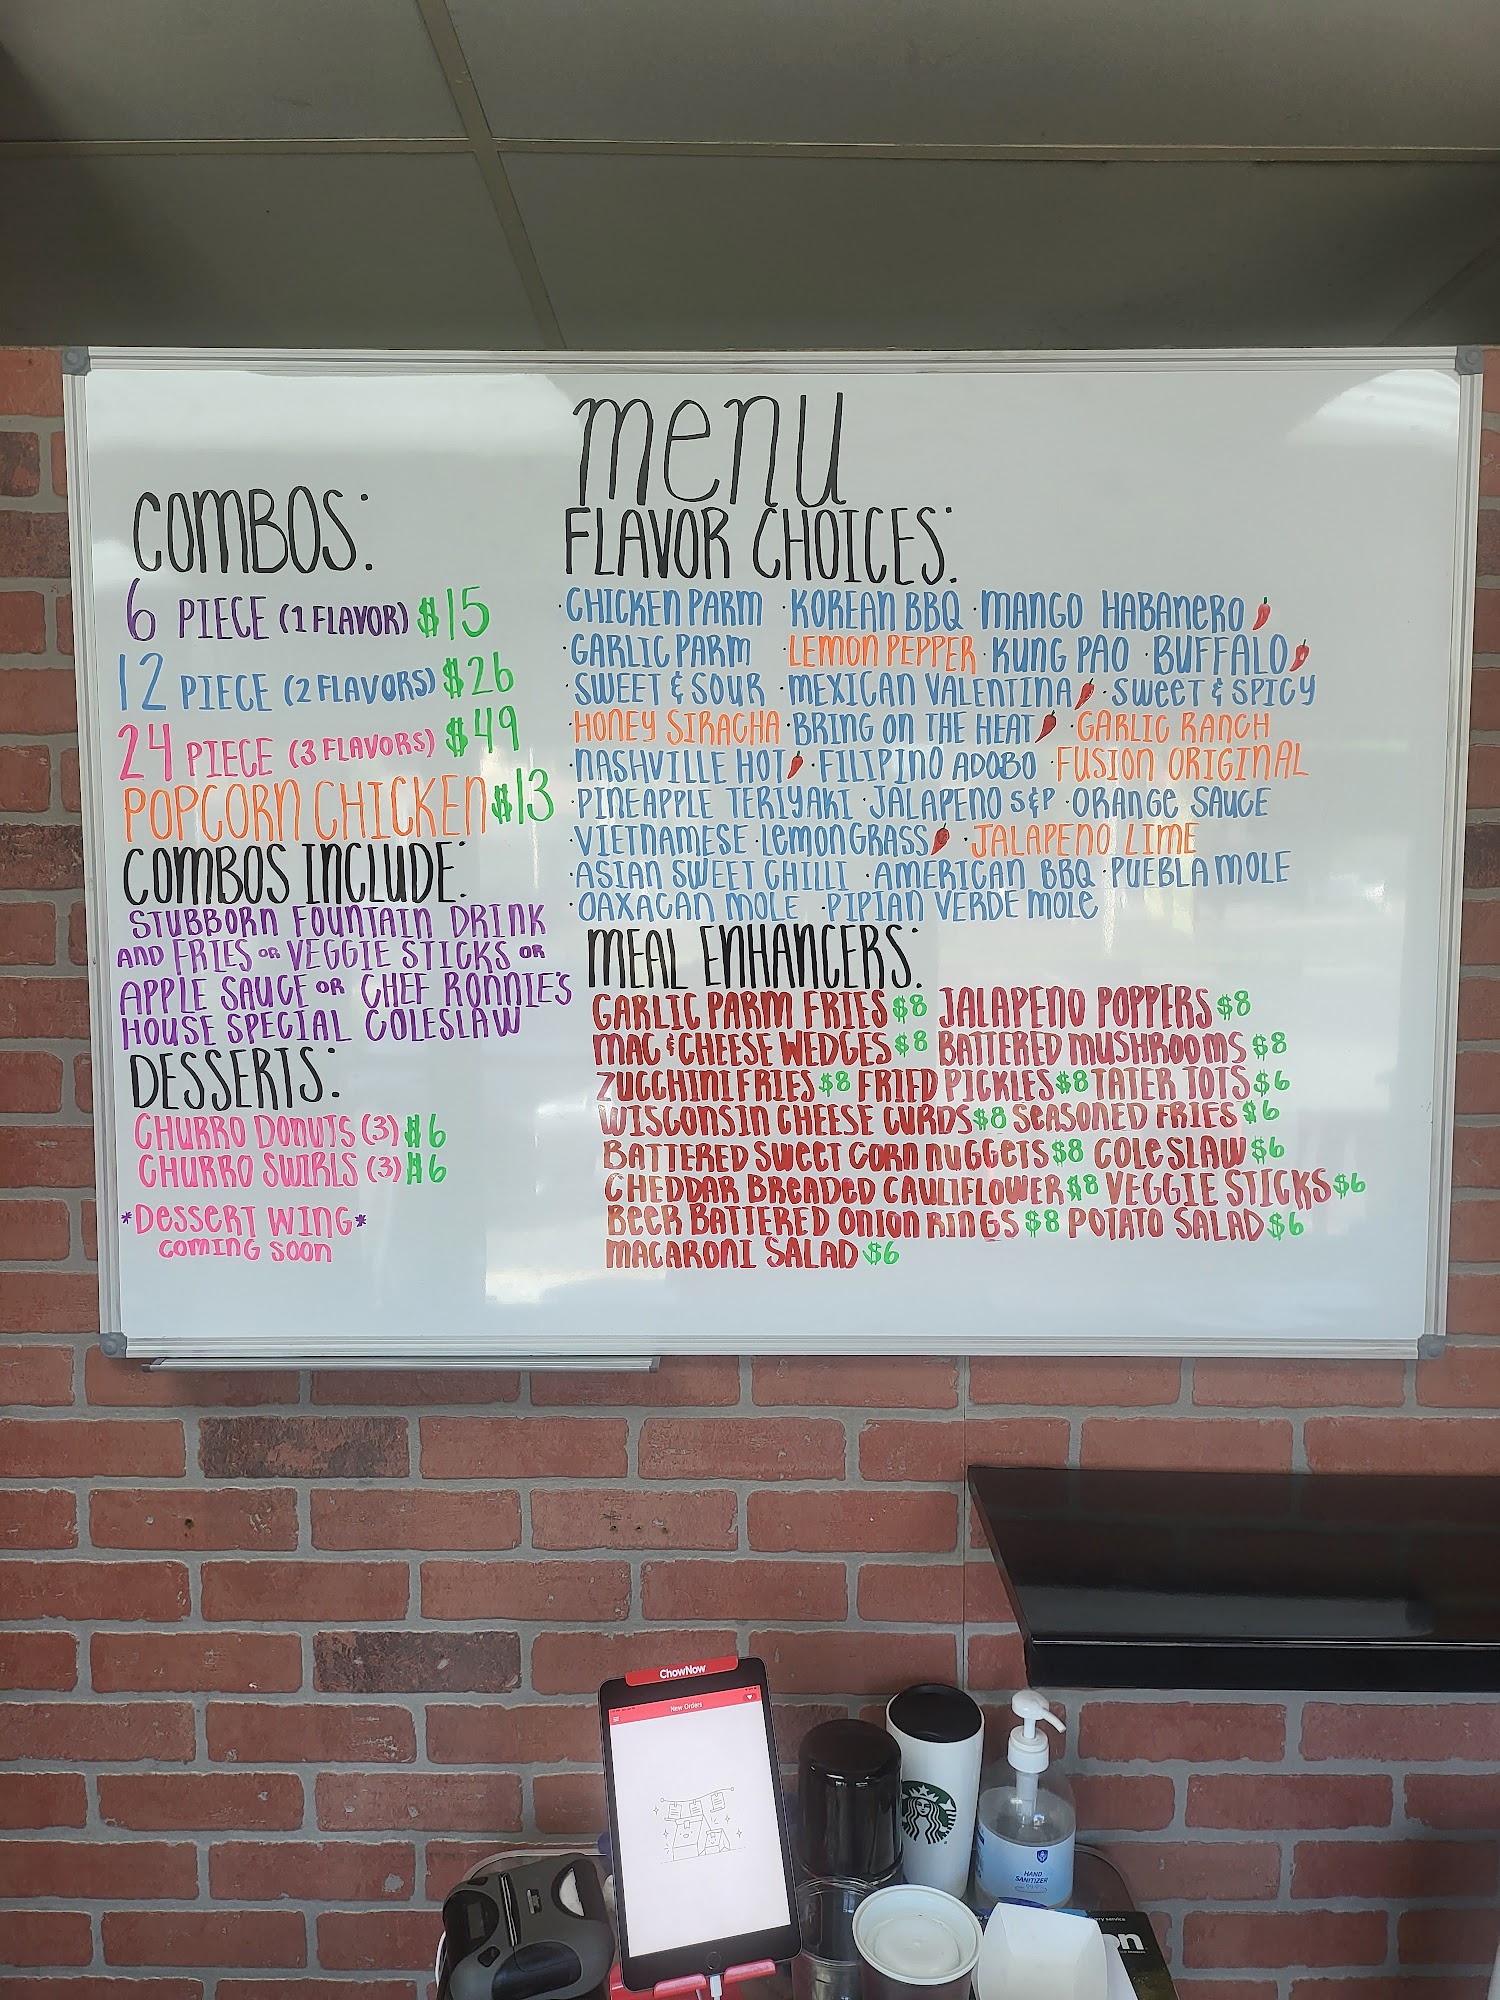 menu
COMBOS:
6 PIECE (1 FLAVOR) $15
12 PIECE (2 FLAVORS) $26
24 PIECE (3 FLAVORS) $49
POPCORN CHICKEN $13
COMBOS INCLUDE:
STUBBORN FOUNTAIN DRINK
AND FRIES OR VEGGIE STICKS OR
APPLE SAUCE OR CHEF RONNIE'S
HOUSE SPECIAL COLESLAW
DESSERTS:
CHURRO DONUTS (3) $6
CHURRO SWIRLS (3) $6
*DESSERT WING*
COMING SOON
FLAVOR CHOICES:
·CHICKEN PARM ·KOREAN BBQ ·MANGO HABANERO
·GARLIC PARM ·LEMON PEPPER ·KUNG PAO ·BUFFALO
·SWEET & SOUR ·MEXICAN VALENTINA ·SWEET & SPICY
·HONEY SIRACHA ·BRING ON THE HEAT ·GARLIC RANCH
·NASHVILLE HOT ·FILIPINO ADOBO ·FUSION ORIGINAL
·PINEAPPLE TERIYAKI ·JALAPENO S&P ·ORANGE SAUCE
·VIETNAMESE ·LEMONGRASS ·JALAPENO LIME
·ASIAN SWEET CHILLI ·AMERICAN BBQ ·PUEBLA MOLE
·OAXACAN MOLE ·PIPIAN VERDE MOLE
MEAL ENHANCERS:
GARLIC PARM FRIES $8 JALAPENO POPPERS $8
MAC & CHEESE WEDGES $8 BATTERED MUSHROOMS $8
ZUCCHINI FRIES $8 FRIED PICKLES $8 TATER TOTS $6
WISCONSIN CHEESE CURDS $8 SEASONED FRIES $6
BATTERED SWEET CORN NUGGETS $8 COLE SLAW $6
CHEDDAR BREADED CAULIFLOWER $8 VEGGIE STICKS $6
BEER BATTERED ONION RINGS $8 POTATO SALAD $6
MACARONI SALAD $6
ChowNow
New Orders
HAND
SANITIZER